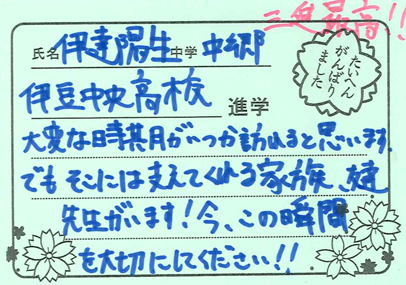 三島最高!!
氏名 伊達陽生 中学 中郷
伊豆中央高校 進学
たいへん
がんばり
ました
大変な時期がいつか訪れると思います。
でもそこには支えてくれる家族、友達
先生がいます!今、この瞬間
を大切にしてください!!